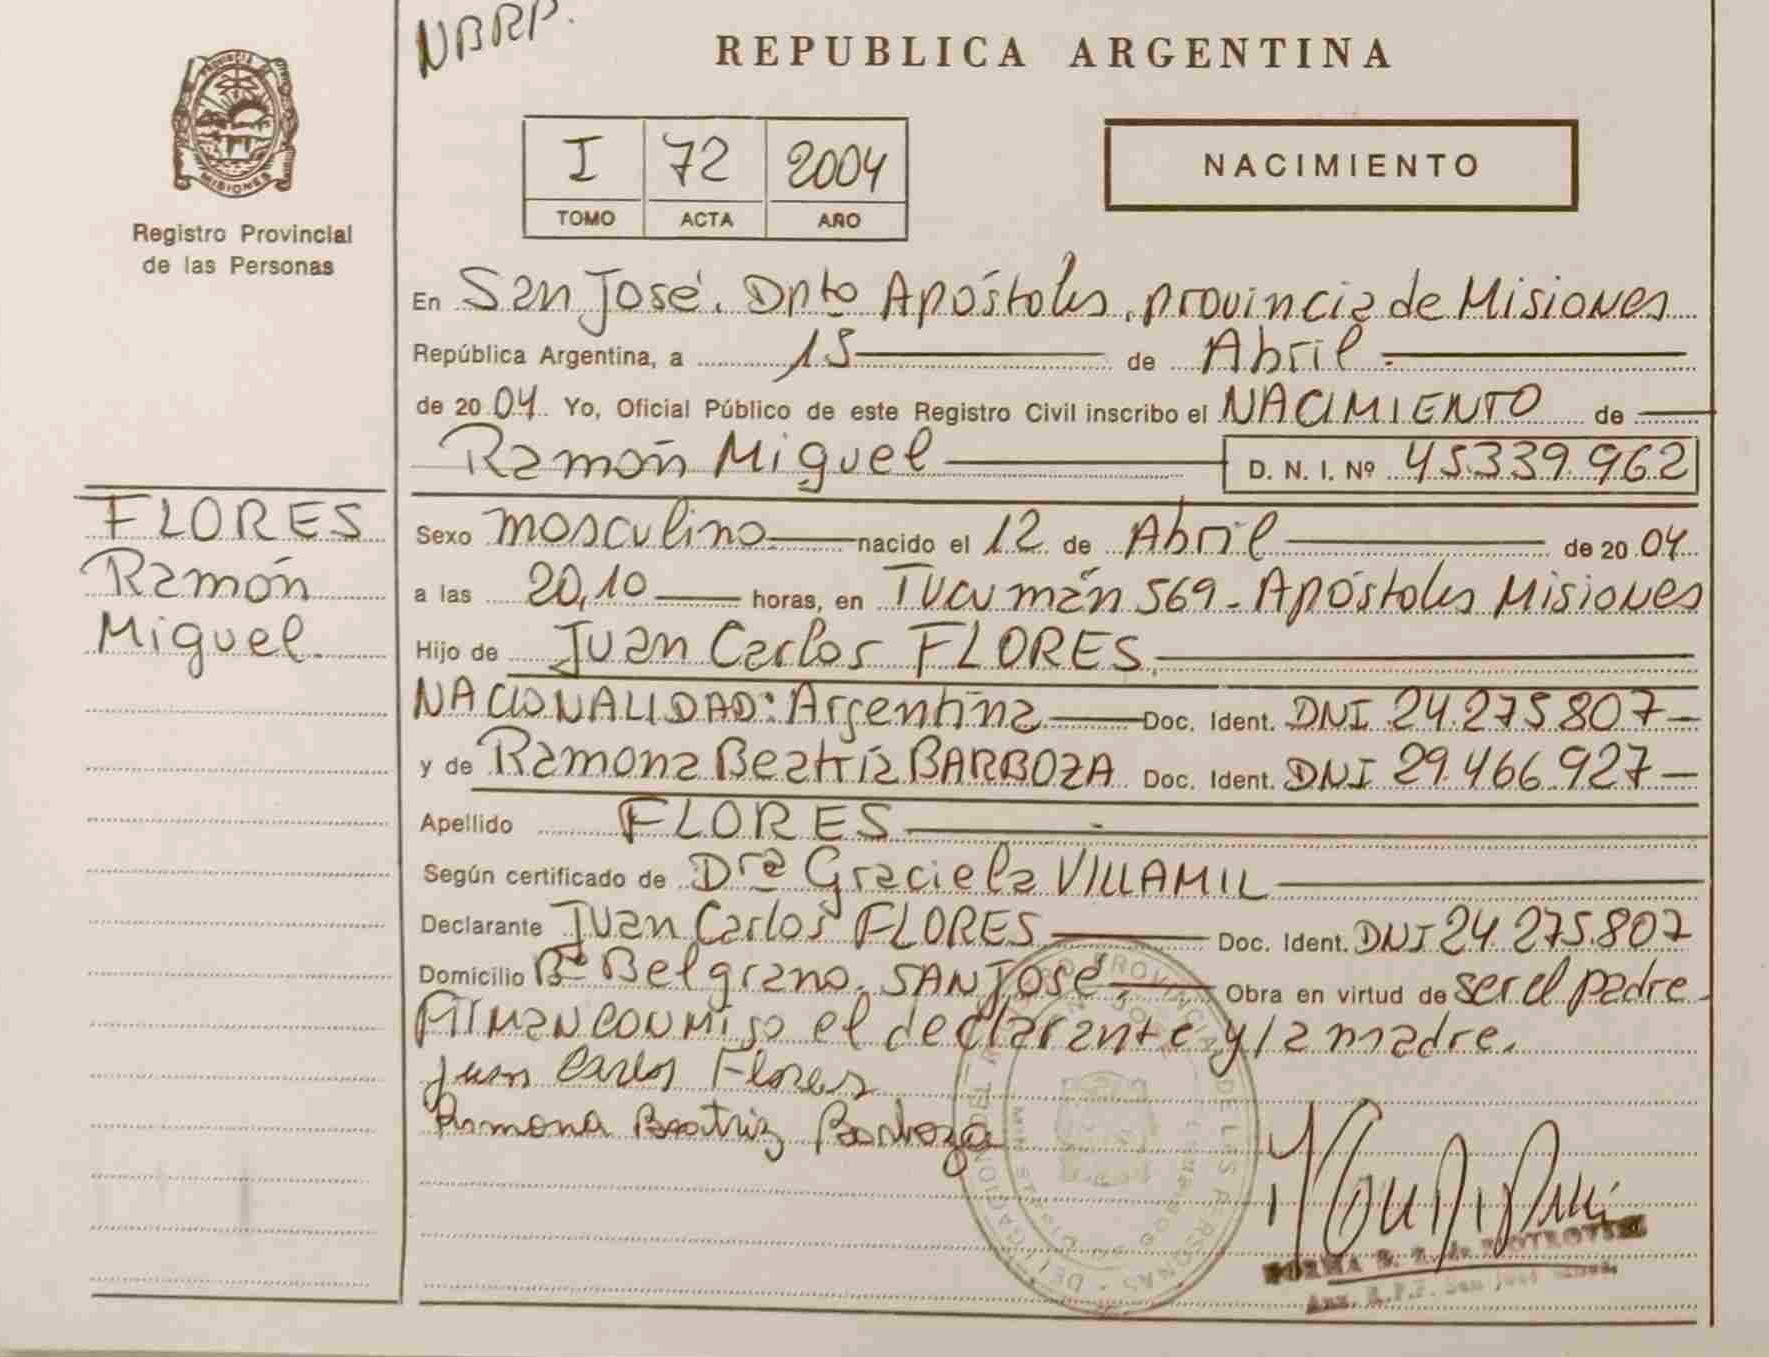 NBRP.
REPUBLICA ARGENTINA
PROVINCIA DE
MISIONES
Registro Provincial
de las Personas
I 72 2004
TOMO ACTA AÑO
NACIMIENTO
En San José. Dpto Apóstoles, provincia de Misiones
República Argentina, a 15 de Abril
de 2004 Yo, Oficial Público de este Registro Civil inscribo el NACIMIENTO de
Ramón Miguel D. N. I. Nº 45.339.962
FLORES
Ramón
Miguel.
Sexo masculino nacido el 12 de Abril de 2004
a las 20,10 horas, en Tucumán 569 - Apóstoles Misiones
Hijo de Juan Carlos FLORES
NACIONALIDAD: Argentina Doc. Ident. DNI 24.275.807-
y de Ramona Beatríz BARBOZA Doc. Ident. DNI 29.466.927-
Apellido FLORES
Según certificado de Dra Graciela VILLAMIL
Declarante Juan Carlos FLORES Doc. Ident. DNI 24.275.807
Domicilio Bº Belgrano. SAN JOSÉ Obra en virtud de ser el padre
Firman conmigo el declarante y la madre.
Juan Carlos Flores
Ramona Beatriz Barboza
NORMA
San José